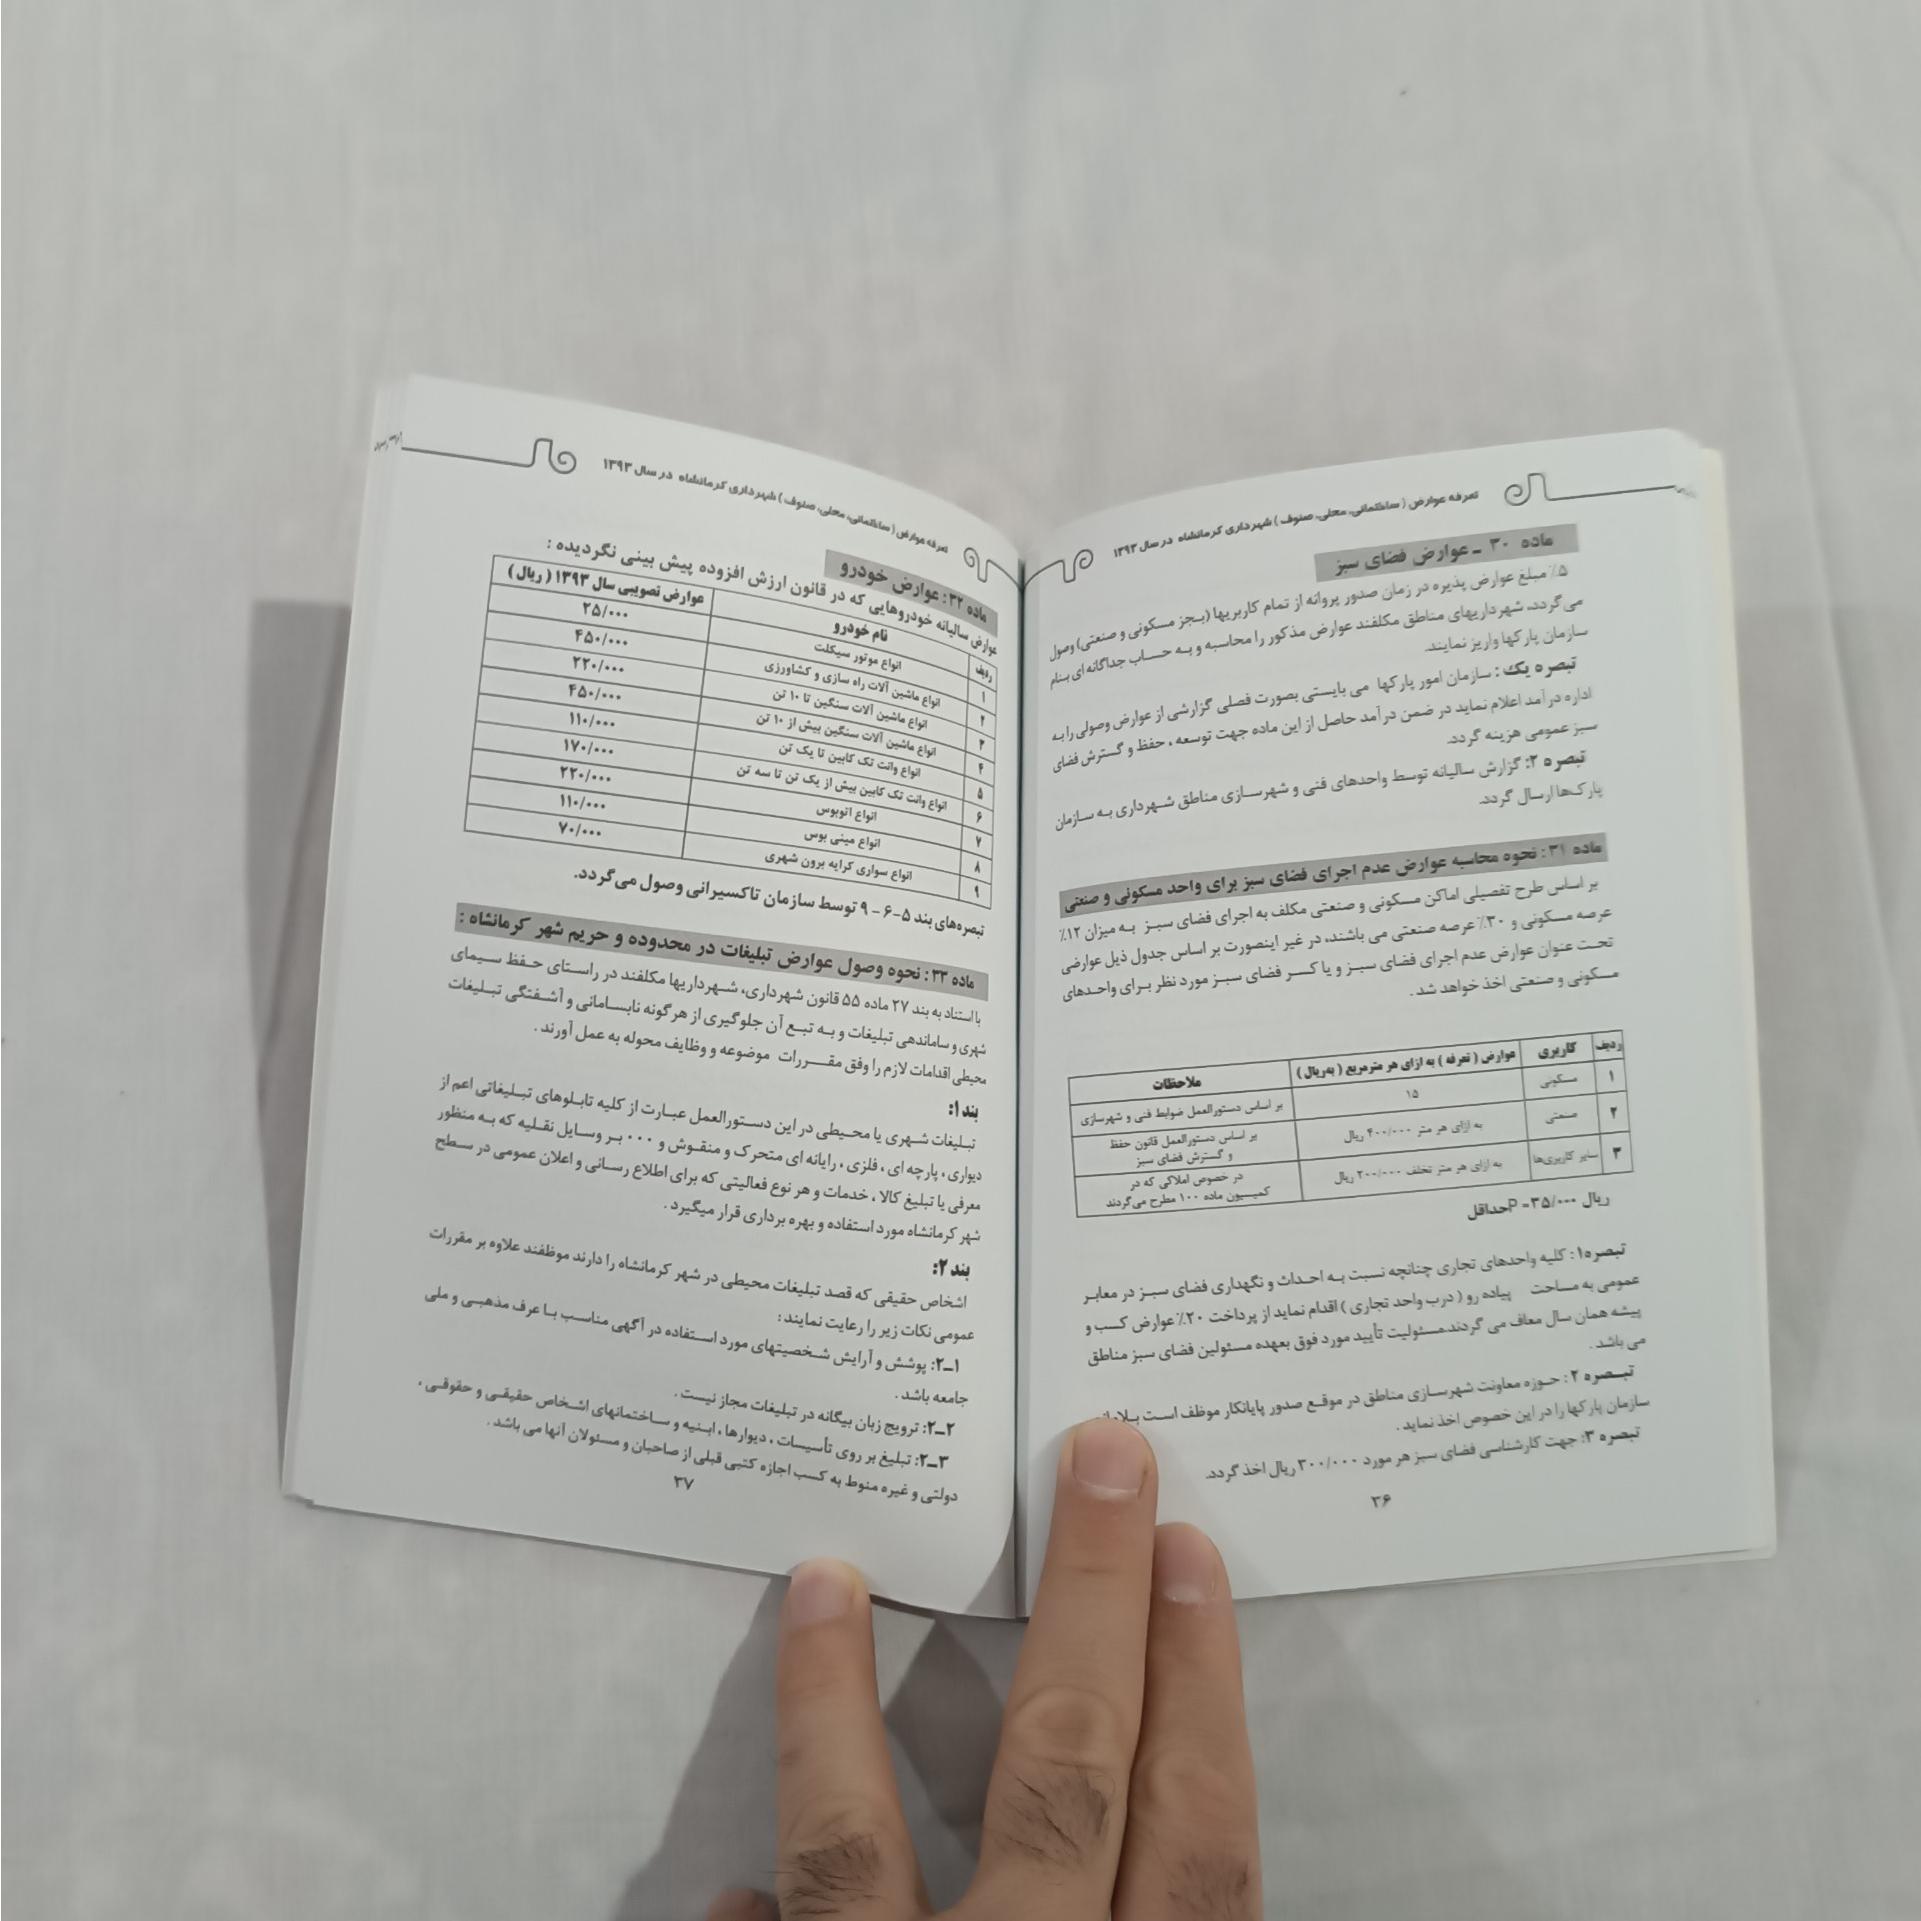 تعرفه عوارض ( ساختمانی، محلی، صنوف ) شهرداری کرمانشاه در سال ۱۳۹۳
ماده ۳۰ ـ عوارض فضای سبز
۵٪ مبلغ عوارض پذیره در زمان صدور پروانه از تمام کاربریها (بجز مسکونی و صنعتی) وصول
می گردد، شهرداریهای مناطق مکلفند عوارض مذکور را محاسبه و به حساب جداگانه ای بنام
سازمان پارکها واریز نمایند.
تبصره یک : سازمان امور پارکها می بایستی بصورت فصلی گزارشی از عوارض وصولی را به
اداره درآمد اعلام نماید در ضمن درآمد حاصل از این ماده جهت توسعه ، حفظ و گسترش فضای
سبز عمومی هزینه گردد.
تبصره ۲: گزارش سالیانه توسط واحدهای فنی و شهرسازی مناطق شهرداری به سازمان
پارک‌ها ارسال گردد.
ماده ۳۱ : نحوه محاسبه عوارض عدم اجرای فضای سبز برای واحد مسکونی و صنعتی
بر اساس طرح تفصیلی اماکن مسکونی و صنعتی مکلف به اجرای فضای سبز به میزان ۱۲٪
عرصه مسکونی و ۳۰٪ عرصه صنعتی می باشند، در غیر اینصورت بر اساس جدول ذیل عوارضی
تحت عنوان عوارض عدم اجرای فضای سبز و یا کسر فضای سبز مورد نظر برای واحدهای
مسکونی و صنعتی اخذ خواهد شد .
ردیف کاربری عوارض ( تعرفه ) به ازای هر مترمربع ( به‌ریال ) ملاحظات
۱ مسکونی ۱۵ بر اساس دستورالعمل ضوابط فنی و شهرسازی
۲ صنعتی به ازای هر متر ۴۰۰/۰۰۰ ریال بر اساس دستورالعمل قانون حفظ
و گسترش فضای سبز
۳ سایر کاربری‌ها به ازای هر متر تخلف ۲۰۰/۰۰۰ ریال در خصوص املاکی که در
کمیسیون ماده ۱۰۰ مطرح می‌گردند
ریال ۳۵/۰۰۰= Pحداقل
تبصره۱ : کلیه واحدهای تجاری چنانچه نسبت به احداث و نگهداری فضای سبز در معابر
عمومی به مساحت پیاده رو ( درب واحد تجاری ) اقدام نماید از پرداخت ۲۰٪ عوارض کسب و
پیشه همان سال معاف می گردند.مسئولیت تأیید مورد فوق بعهده مسئولین فضای سبز مناطق
می باشد .
تبصره ۲ : حوزه معاونت شهرسازی مناطق در موقع صدور پایانکار موظف است
سازمان پارکها را در این خصوص اخذ نماید .
تبصره ۳: جهت کارشناسی فضای سبز هر مورد ۳۰۰/۰۰۰ ریال اخذ گردد.
۳۶
تعرفه عوارض ( ساختمانی، محلی، صنوف ) شهرداری کرمانشاه در سال ۱۳۹۳
ماده ۳۲ : عوارض خودرو
عوارض سالیانه خودروهایی که در قانون ارزش افزوده پیش بینی نگردیده :
ردیف نام خودرو عوارض تصویبی سال ۱۳۹۳ ( ریال )
۱ انواع موتور سیکلت ۲۵/۰۰۰
۲ انواع ماشین آلات راه سازی و کشاورزی ۴۵۰/۰۰۰
۳ انواع ماشین آلات سنگین تا ۱۰ تن ۲۲۰/۰۰۰
۴ انواع ماشین آلات سنگین بیش از ۱۰ تن ۴۵۰/۰۰۰
۵ انواع وانت تک کابین تا یک تن ۱۱۰/۰۰۰
۶ انواع وانت تک کابین بیش از یک تن تا سه تن ۱۷۰/۰۰۰
۷ انواع اتوبوس ۲۲۰/۰۰۰
۸ انواع مینی بوس ۱۱۰/۰۰۰
۹ انواع سواری کرایه برون شهری ۷۰/۰۰۰
تبصره‌های بند ۵-۶ - ۹ توسط سازمان تاکسیرانی وصول می‌گردد.
ماده ۳۳ : نحوه وصول عوارض تبلیغات در محدوده و حریم شهر کرمانشاه :
با استناد به بند ۲۷ ماده ۵۵ قانون شهرداری، شهرداریها مکلفند در راستای حفظ سیمای
شهری و ساماندهی تبلیغات و به تبع آن جلوگیری از هرگونه نابسامانی و آشفتگی تبلیغات
محیطی اقدامات لازم را وفق مقررات موضوعه و وظایف محوله به عمل آورند .
بند ۱:
تبلیغات شهری یا محیطی در این دستورالعمل عبارت از کلیه تابلوهای تبلیغاتی اعم از
دیواری ، پارچه ای ، فلزی ، رایانه ای متحرک و منقوش و ۰۰۰ بر وسایل نقلیه که به منظور
معرفی یا تبلیغ کالا ، خدمات و هر نوع فعالیتی که برای اطلاع رسانی و اعلان عمومی در سطح
شهر کرمانشاه مورد استفاده و بهره برداری قرار میگیرد .
بند ۲:
اشخاص حقیقی که قصد تبلیغات محیطی در شهر کرمانشاه را دارند موظفند علاوه بر مقررات
عمومی نکات زیر را رعایت نمایند :
۱ـ۲: پوشش و آرایش شخصیتهای مورد استفاده در آگهی مناسب با عرف مذهبی و ملی
جامعه باشد .
۲ـ۲: ترویج زبان بیگانه در تبلیغات مجاز نیست .
۳ـ۲: تبلیغ بر روی تأسیسات ، دیوارها ، ابنیه و ساختمانهای اشخاص حقیقی و حقوقی ،
دولتی و غیره منوط به کسب اجازه کتبی قبلی از صاحبان و مسئولان آنها می باشد .
۳۷